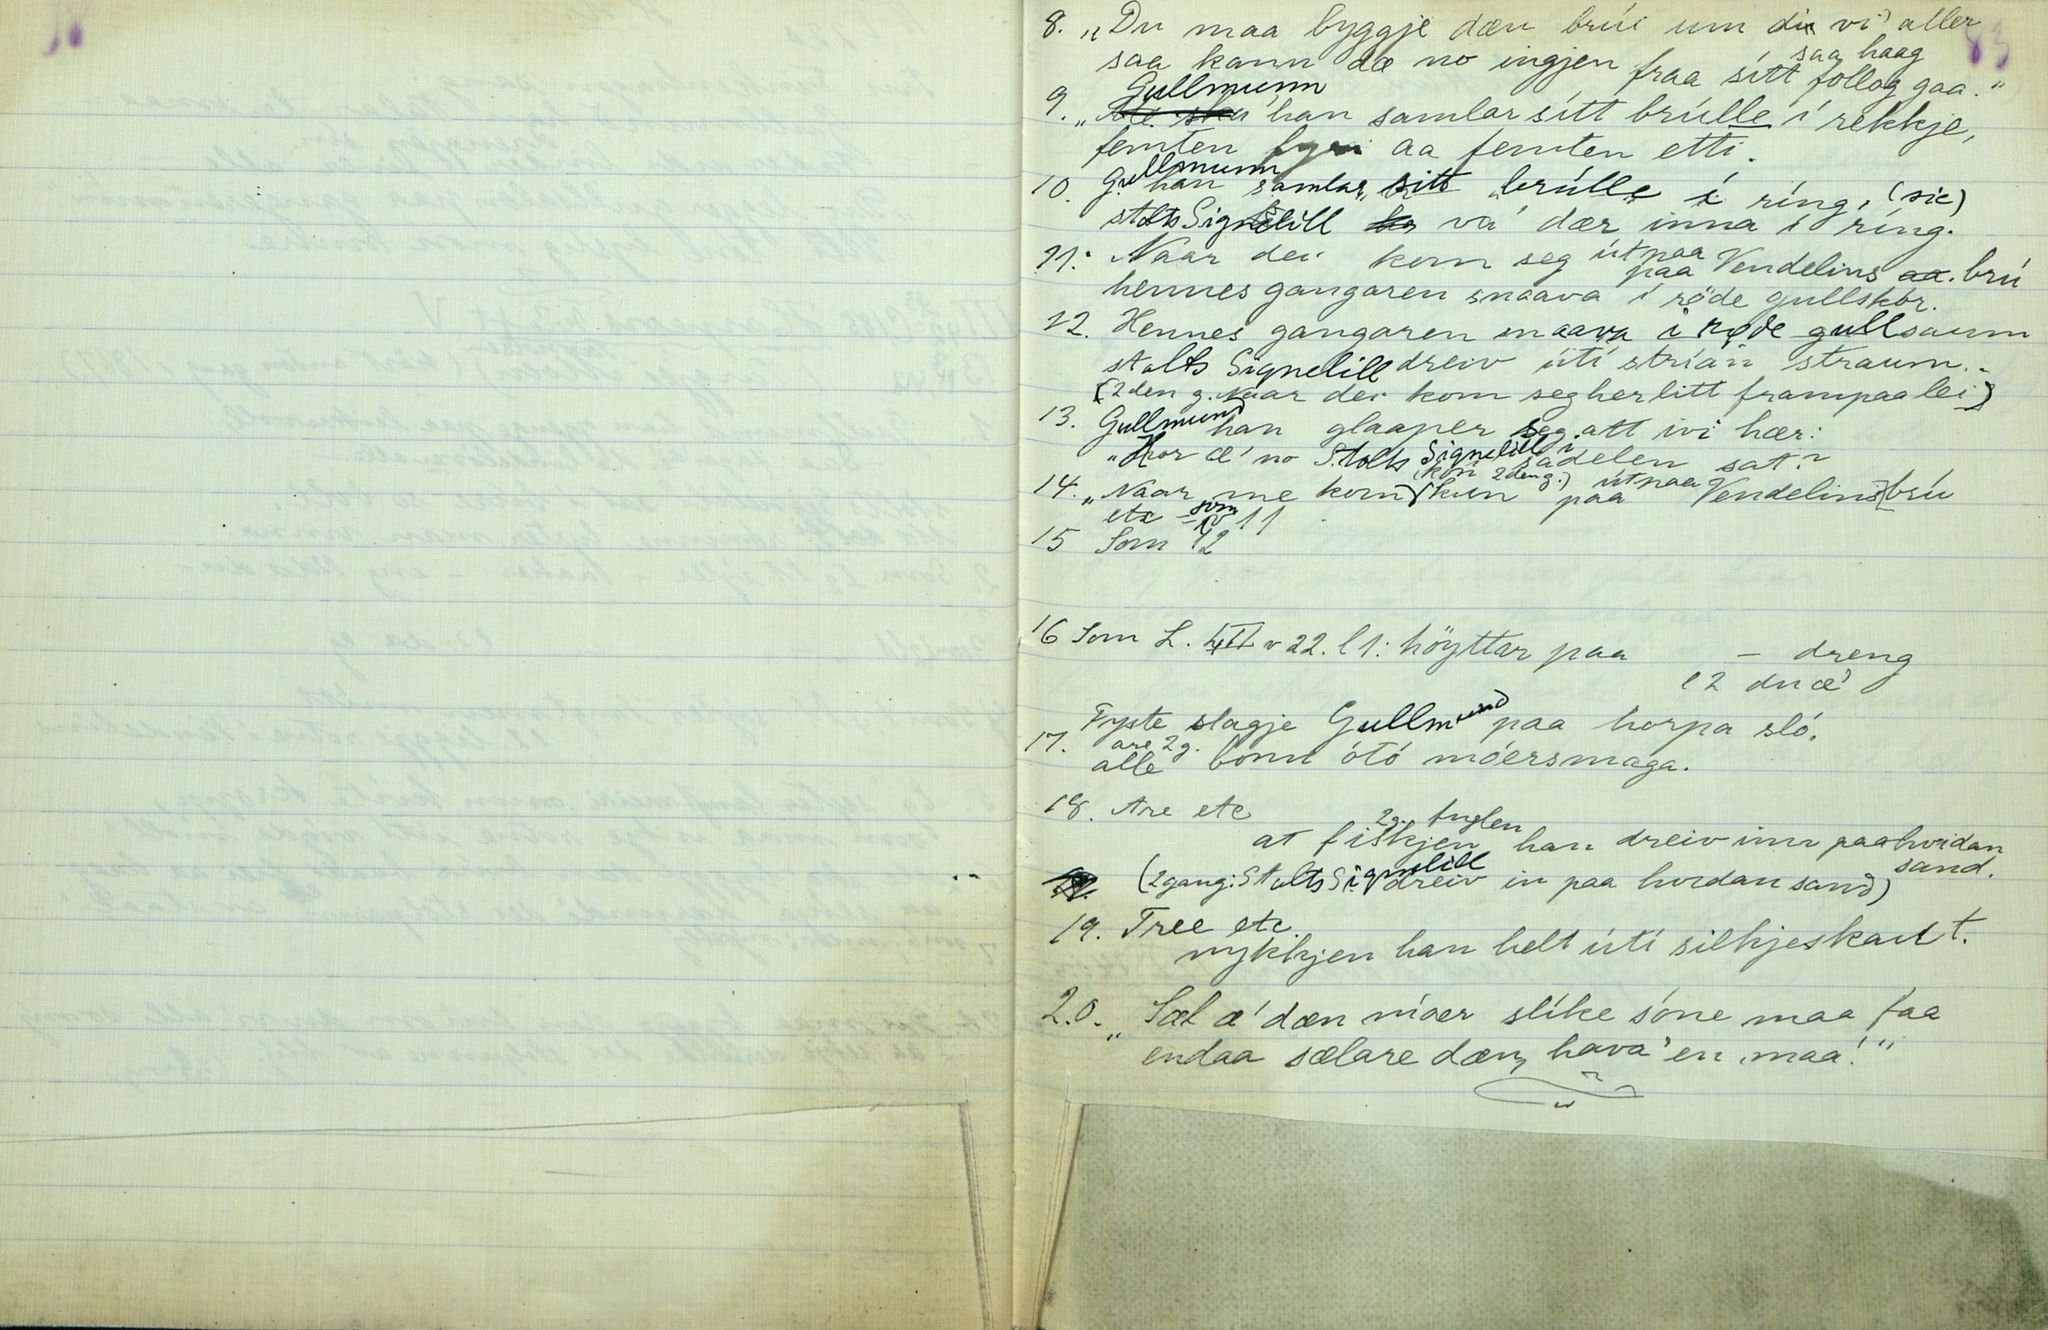 83
8. „Du maa byggje dæn brúi um du vi' aller
saa haag
saa kann dæ no ingjen fraa sitt follog gaa."
Gullmunn
9. „ han samlar sítt brúlle í rekkje,
femten fyri aa femten etti.
10. Gullmunn han samlar sitt „brúlle" í ríng, (sic)
stolts Signelill va' dær inna í ríng.
11. Naar dei kom seg útpaa paa Vendelins aa. brú
hennes gangaren snaava í röde gullskór.
12. Hennes gangaren snaava i røde gullsaum
stolts Signelill dreiv útí strían straum.
(2den g. Naar dei kom seg her litt frampaa lei)
13. Gullmund han glaaper seg att ivi hær:
„Hor æ' no Stolts Signelill i sadelen sat?
14. „Naar me kom (kón 2den g.) kun útpaa paa Vendelins brú
etc som v 11
15 Som 12
16 Som L. III v 22. l 1: höyttar paa – dreng
l 2 du æ'
17. Fyste slagje Gullmund paa horpa sló,
are 2g.
alle bonn ótó móersmaga.
18. Are etc
2g. fuglen
at fiskjen han dreiv inn paa hvidan sand.
(2gang: Stolts Signelill dreiv in paa hvidan sand)
19. Tree etc.
nykkjen han helt útí silkjeskaut.
20. „Sæl æ' dæn móer slíke sóne maa faa
endaa sælare dæn, hava 'en maa!"